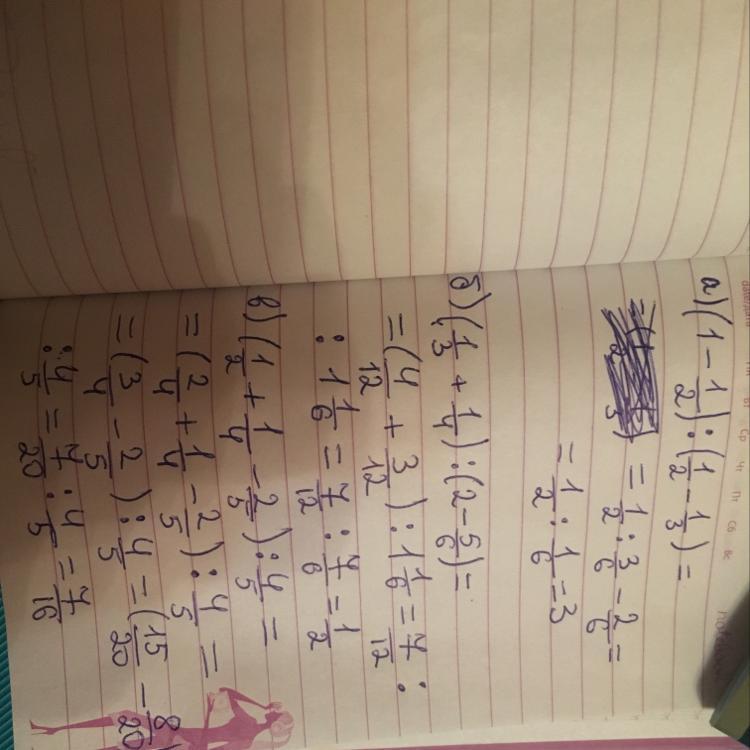 а) (1 - 1/2) : (1/2 - 1/3) =
= 1/2 : 3/6 - 2/6 =
= 1/2 : 1/6 = 3
б) (1/3 + 1/4) : (2 - 5/6) =
= (4/12 + 3/12) : 1 1/6 = 7/12 :
: 1 1/6 = 7/12 : 7/6 = 1/2
в) (1/2 + 1/4 - 2/5) : 4/5 =
= (2/4 + 1/4 - 2/5) : 4/5 =
= (3/4 - 2/5) : 4/5 = (15/20 - 8/20)
: 4/5 = 7/20 : 4/5 = 7/16